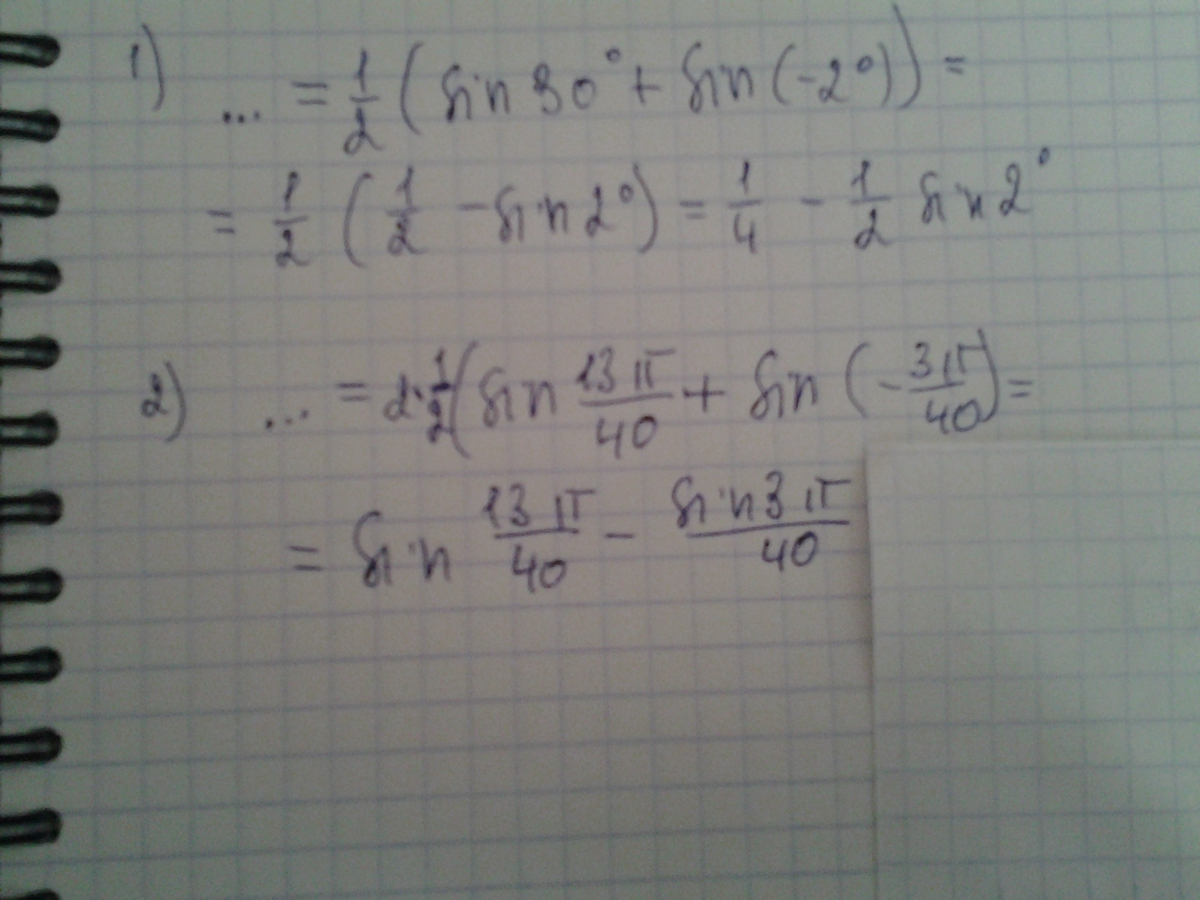 1) ... = 1/2 (sin 30° + sin (-2°)) =
= 1/2 (1/2 - sin 2°) = 1/4 - 1/2 sin 2°
2) ... = 2·1/2 (sin 13π/40 + sin (-3π/40) =
= sin 13π/40 - sin 3π/40